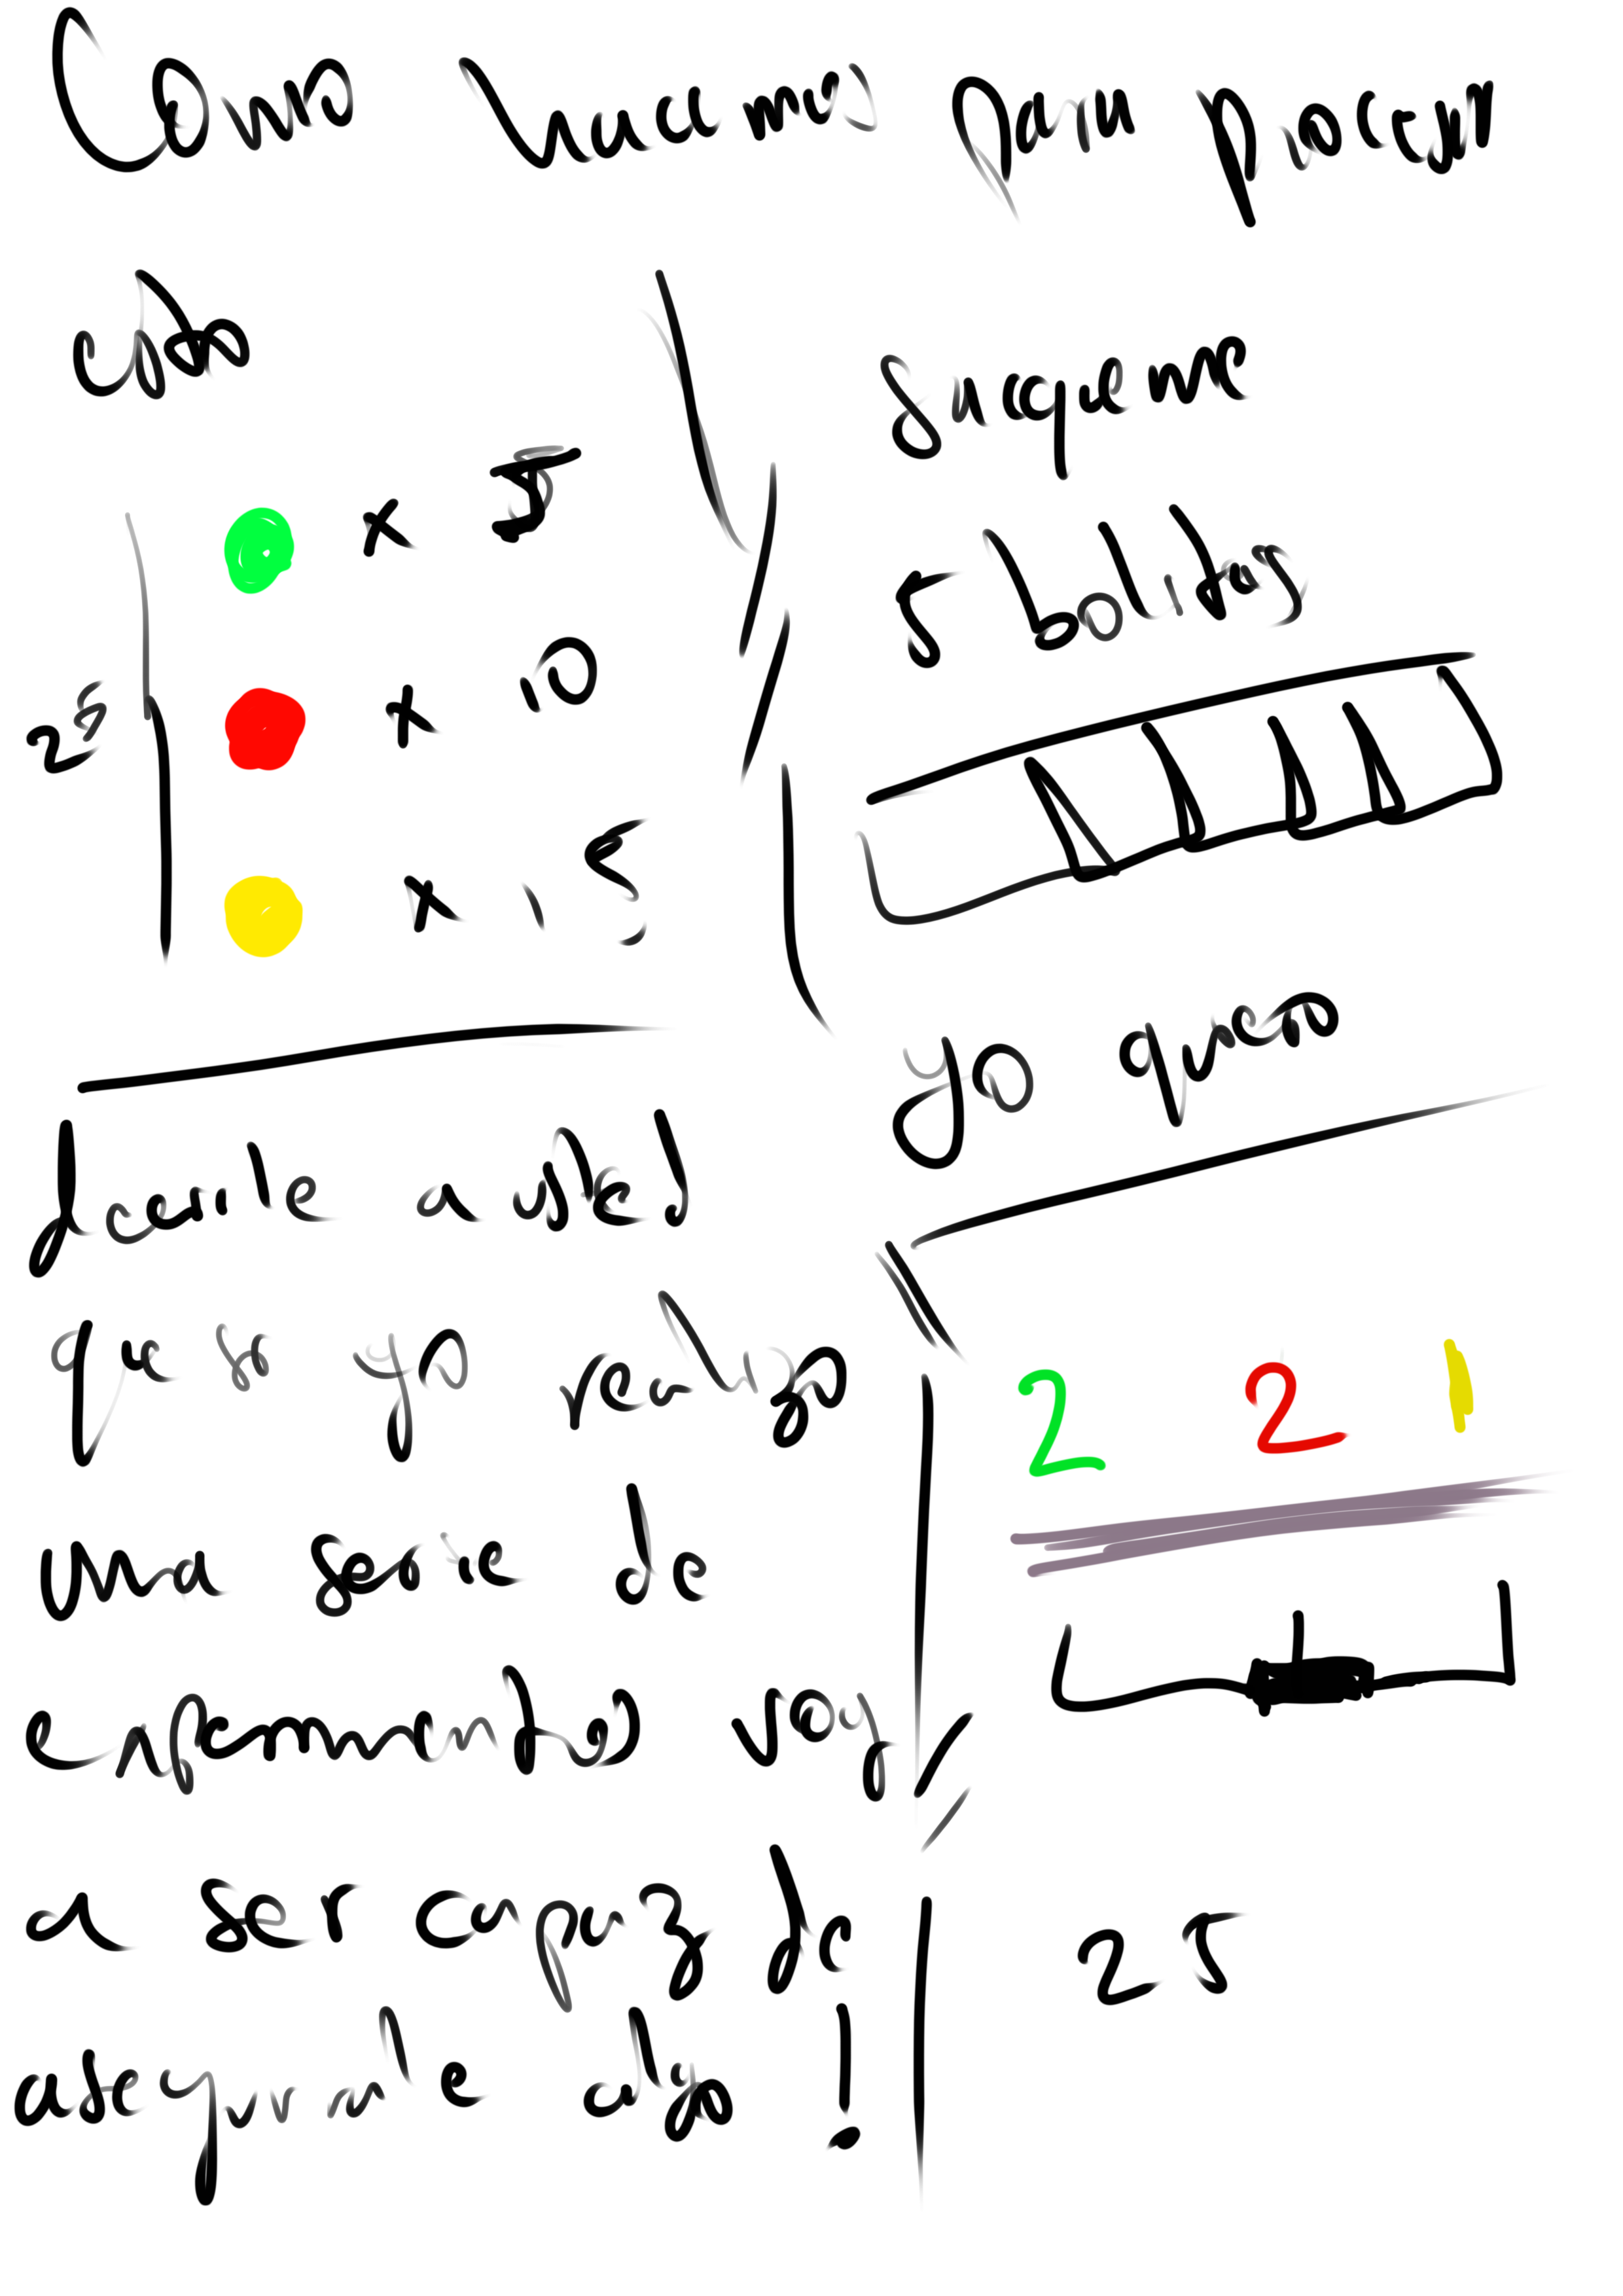 Como hacemos para procesar
esto
x 5
25
x 10
x 15
saqueme
5 bolitas
yo quiero
2 2 1
25
decirle a usted
que si yo realizo
una serie de
experimentos voy
a ser capaz de
asegurarle algo!